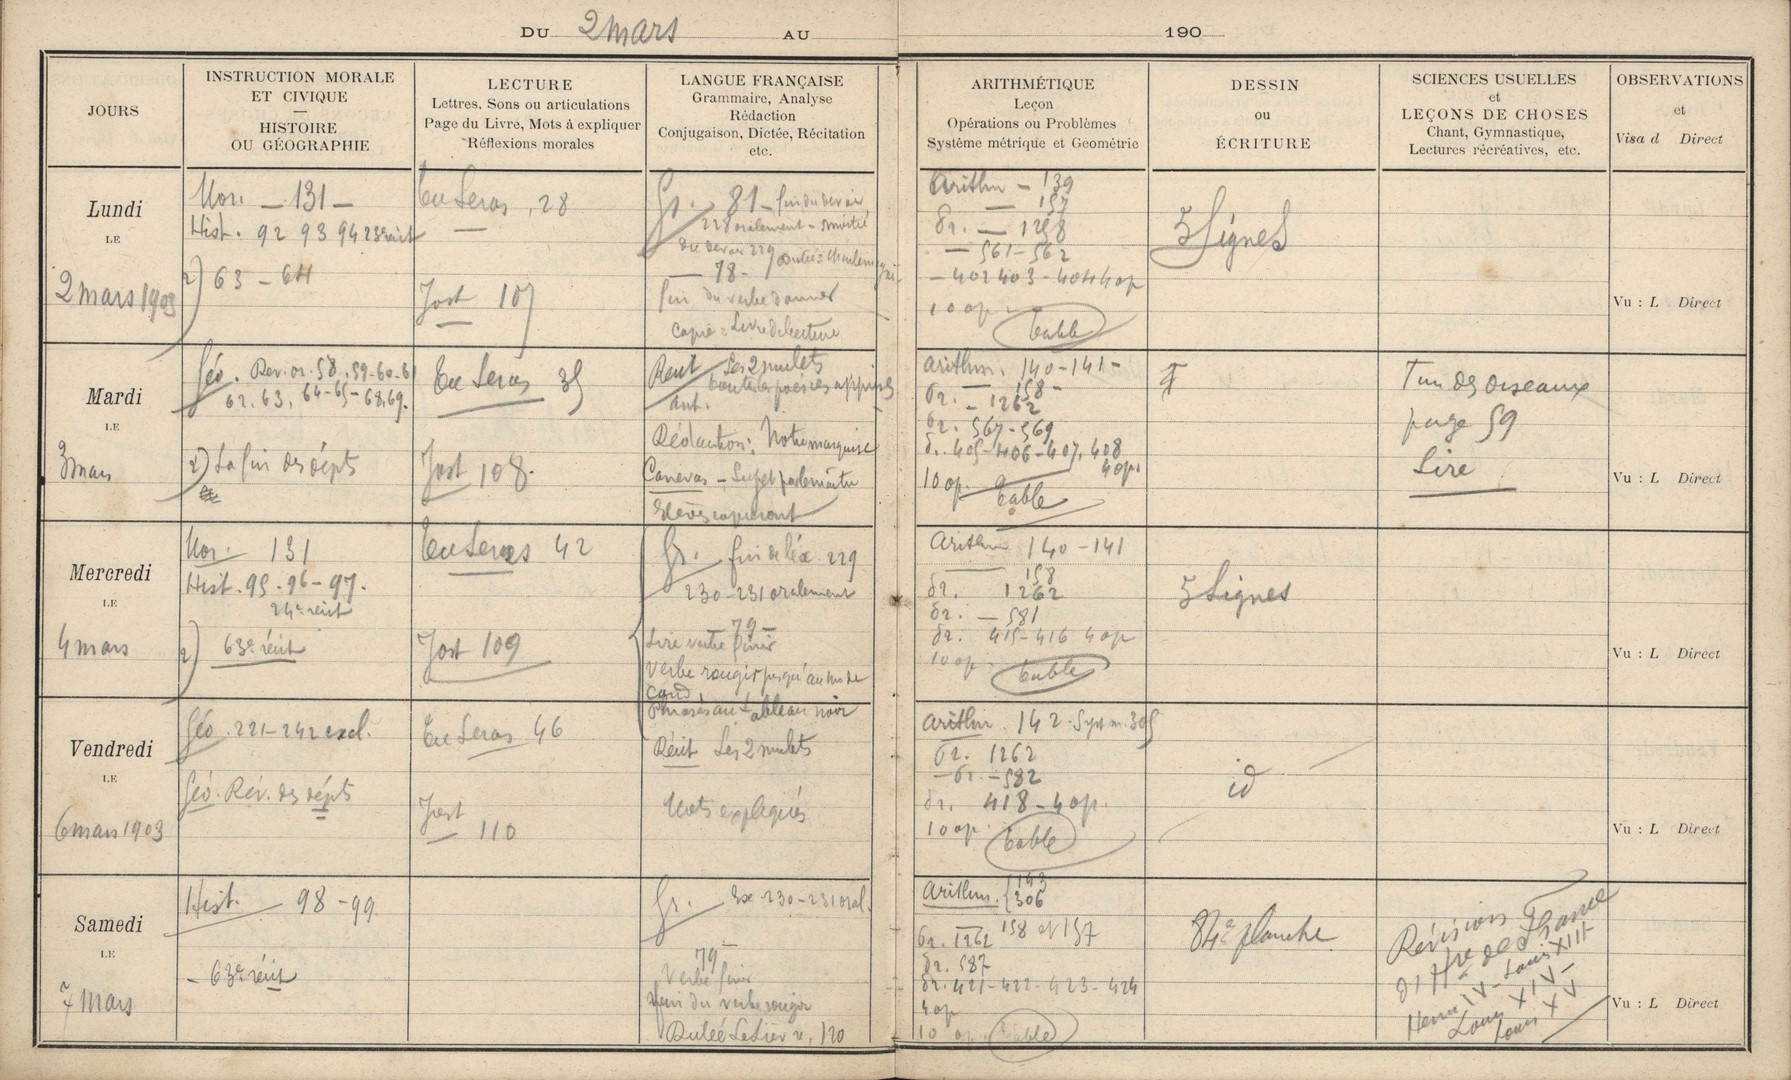 DU 2 mars AU 190
JOURS
INSTRUCTION MORALE
ET CIVIQUE
—
HISTOIRE
OU GÉOGRAPHIE
LECTURE
Lettres, Sons ou articulations
Page du Livre, Mots à expliquer
Réflexions morales
LANGUE FRANÇAISE
Grammaire, Analyse
Rédaction
Conjugaison, Dictée, Récitation
etc.
ARITHMÉTIQUE
Leçon
Opérations ou Problèmes
Système métrique et Geométrie
DESSIN
ou
ÉCRITURE
SCIENCES USUELLES
et
LEÇONS DE CHOSES
Chant, Gymnastique,
Lectures récréatives, etc.
OBSERVATIONS
et
Visa d Direct
Lundi
LE
2 mars 1903
Mor. — 131 —
Hist. 92 93 94 23e récit
2) 63 - 64
Tu Seras, 28
Jost 107
Gr. 81 - fin du devoir
228 oralement - moitié
du devoir 229
— 78 -
fin du verbe donner
copie = Livre de lecture
Arithm - 139
— 157
Pr. — 1258
— 561-562
- 402 403 - 404 4 op
10 op -
table
5 Lignes
Vu : L Direct
Mardi
LE
3 mars
Géo. Dev. or. 58, 59-60-61
62, 63, 64-65-68, 69.
2) La fin des dépts
Tu Seras 35
Jost 108.
Récit Les 2 mulets
toutes les poésies apprises
ant.
Rédaction: Notre marquise
Canevas -
Elèves copieront
Arithm. 140-141-
— 158 -
- 1262
567-569
405-406-407, 408
4 op.
10 op.
table
des oiseaux
page 59
Lire
Vu : L Direct
Mercredi
LE
4 mars
Mor. 131
Hist. 95-96-97.
24e récit
2) 63e récit
Tu Seras 42
Jost 109
Gr. fin de l'ex 229
230-231 oralement
— 79 —
Lire verbe finir
verbe rougir jusqu'au
cond
Phrases au tableau noir
Arithm 140-141
158
1262
— 581
415-416 4 op
10 op -
table
5 Lignes
Vu : L Direct
Vendredi
LE
6 mars 1903
Géo. 221-242 excl.
Géo. Rév. des dépts
Tu Seras 46
Jost
110
Récit Les 2 mulets
Mots expliqués
Arithm. 142 - Syst m. 305
1262
- 582
418 - 4 op.
10 op.
table
id
Vu : L Direct
Samedi
LE
7 mars
Hist. 98-99
- 63e récit
Gr. Ex 230-231 oral.
79
Verbe finir
fin du verbe rougir
Dictée 120
Arithm. 143
306
1262 158 et 157
587
421-422-423-424
4 op
10 op
table
34e planche
Révision
d'Htre de France
Henri IV - Louis XIII
Louis XIV -
Louis XV
Vu : L Direct